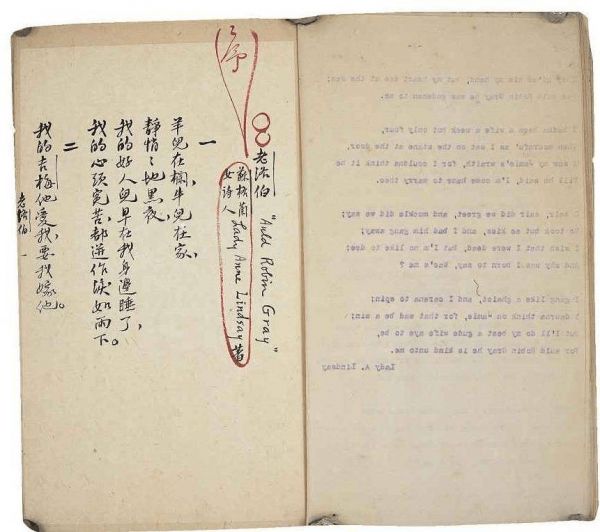 序
老洛伯 "Auld Robin Gray"
蘇格蘭
女詩人 Lady Anne Lindsay 著
一
羊兒在欄，牛兒在家，
靜悄〻地黑夜，
我的好人兒早在我身邊睡了，
我的心頭冤苦，都迸作淚如雨下。
二
我的吉梅他愛我，要我嫁他。
老洛伯 一
gi'ed him my hand, but my heart was at the sea;
auld Robin Gray he was gudeman to me.
I hadna been a wife a week but only four,
When mournfu' as I sat on the stane at the door,
I saw my Jamie's wraith, for I couldna think it he
Till he said, I'm come hame to marry thee.
O sair, sair did we greet, and muckle did we say;
We took but ae kiss, and I bad him gang away;
I wish that I were dead, but I'm no like to dee;
And why was I born to say, Wae's me ?
I gang like a ghaist, and I carena to spin;
I daurna think on Jamie, for that wad be a sin;
But I'll do my best a gude wife aye to be,
For auld Robin Gray he is kind unto me.
Lady A. Lindsay